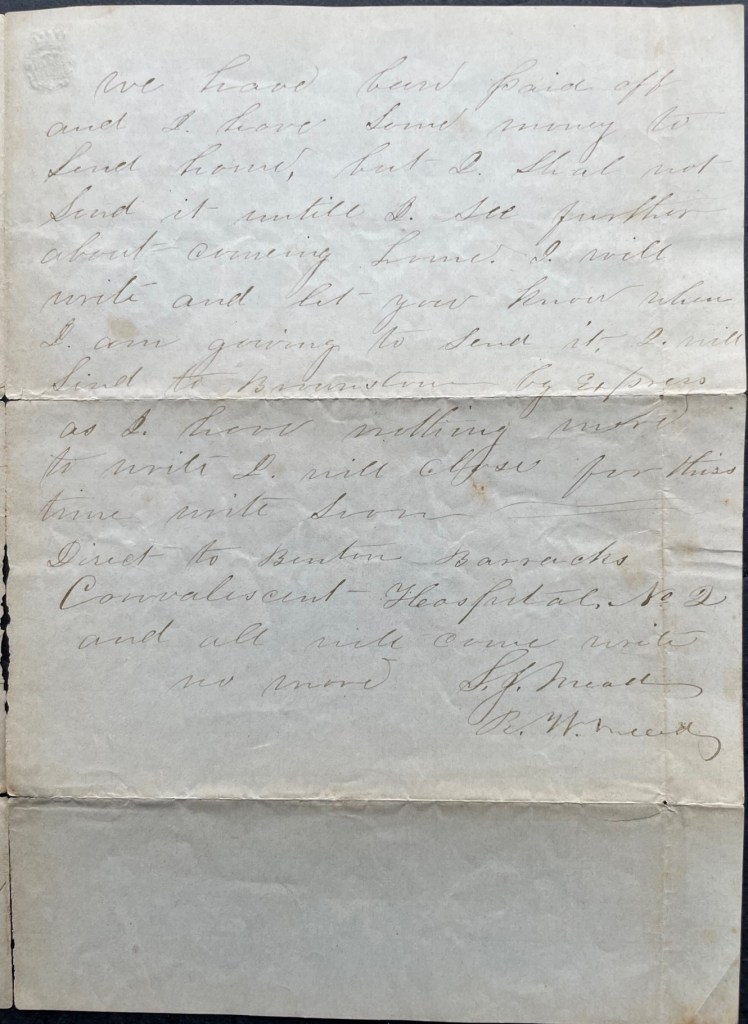 we have been paid off
and I. have some money to
send home, but I. shal not
send it untill I. see further
about comeing home. I. will
write and let you know when
I. am gowing to send it. I. will
send to Brownstown by Express
as I. have nothing more
to write I. will close for thiss
time write soon
Direct to Benton Barracks
Convalescent Hospital. No 2
and all will come write
no more S. J. Mead
R. W. Mead